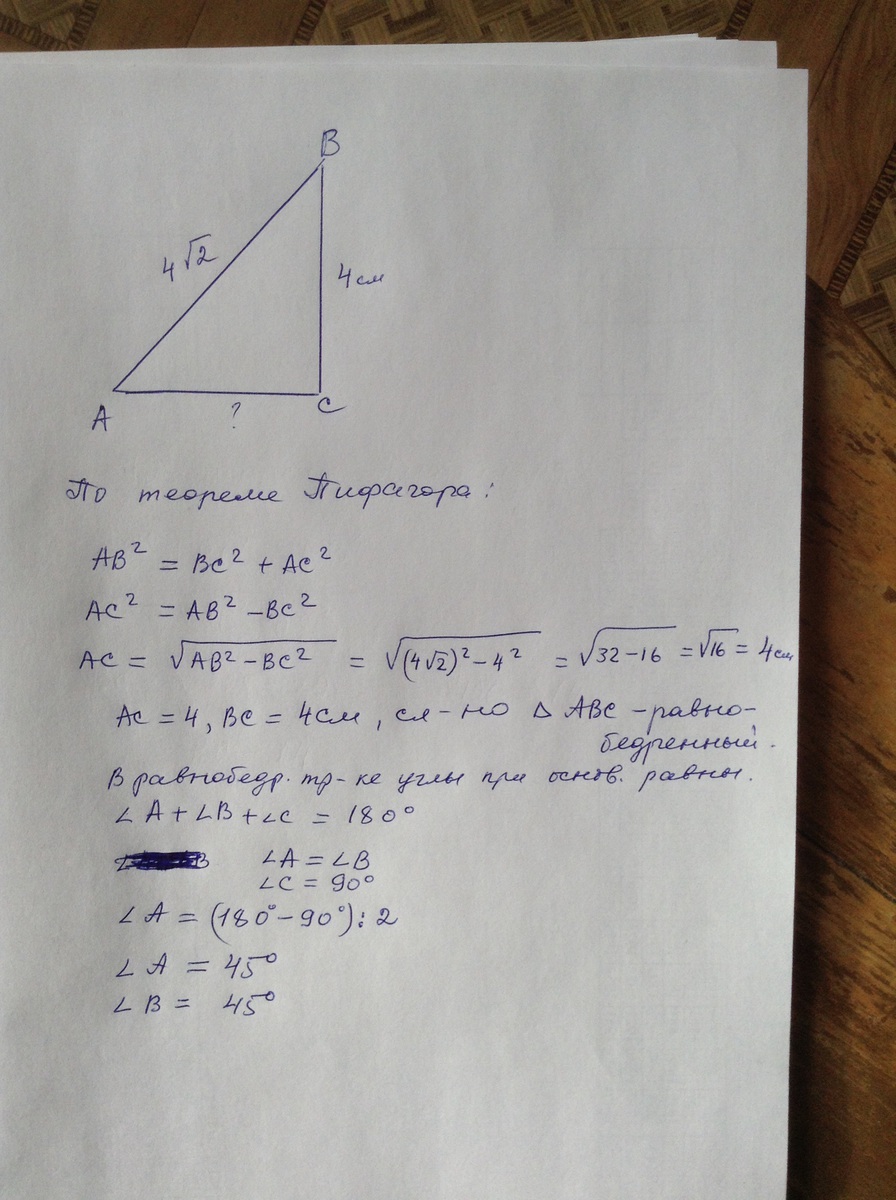 B
4√2
4см
A
?
C
По теореме Пифагора:
AB² = BC² + AC²
AC² = AB² - BC²
AC = √(AB² - BC²) = √((4√2)² - 4²) = √(32-16) = √16 = 4см
AC = 4, BC = 4см, сл-но Δ ABC - равно-
бедренный.
В равнобедр. тр-ке углы при основ. равны.
∠A + ∠B + ∠C = 180°
∠A = ∠B
∠C = 90°
∠A = (180° - 90°) : 2
∠A = 45°
∠B = 45°